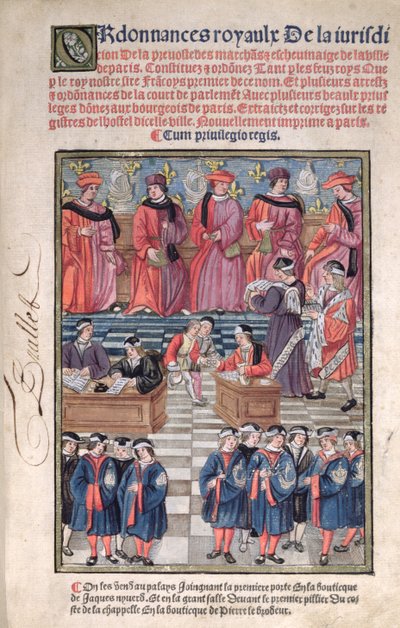 ORdonnances royaulx De la iurisdi
cion De la preuostedes marchãs ⁊ escheuinaige de la ville
de paris. Constituez ⁊ ordõnez Tant p les feuz roys Que
p le roy nostre sire Frãcoys premier de ce nom. Et plusieurs arrestz
⁊ ordõnances de la court de parlemẽt Auec plusieurs beaulx priui
leges dõnez aux bourgeois de paris. Extraictz et corrigez sur les re
gistres de lhostel dicelle ville. Nouuellement imprime a paris.
¶ Cum priuilegio regis.
¶ On les vẽd au palays Joingnant la premiere porte En la bouticque
de Jaques nyuerd. Et en la grant salle Deuant le premier pillier Du co
ste de la chappelle En la bouticque de Pierre le brodeur.